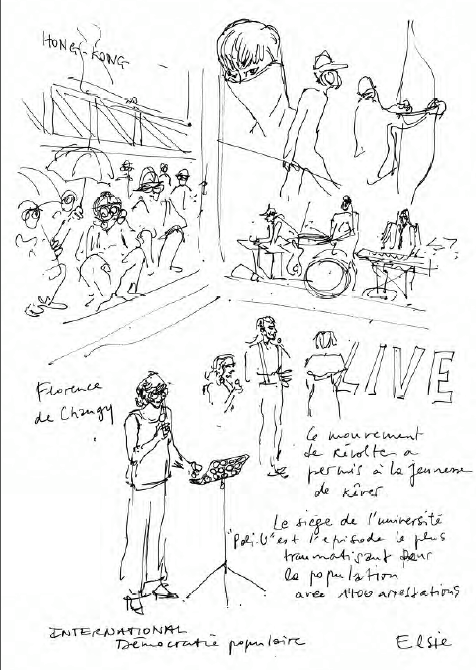 HONG-KONG
LIVE
Florence
de Changy
Ce mouvement
de révolte a
permis à la jeunesse
de rêver
Le siège de l'université
"Poli.U" est l'épisode le plus
traumatisant pour
la population
avec 1100 arrestations
INTERNATIONAL
Démocratie populaire
Elsie